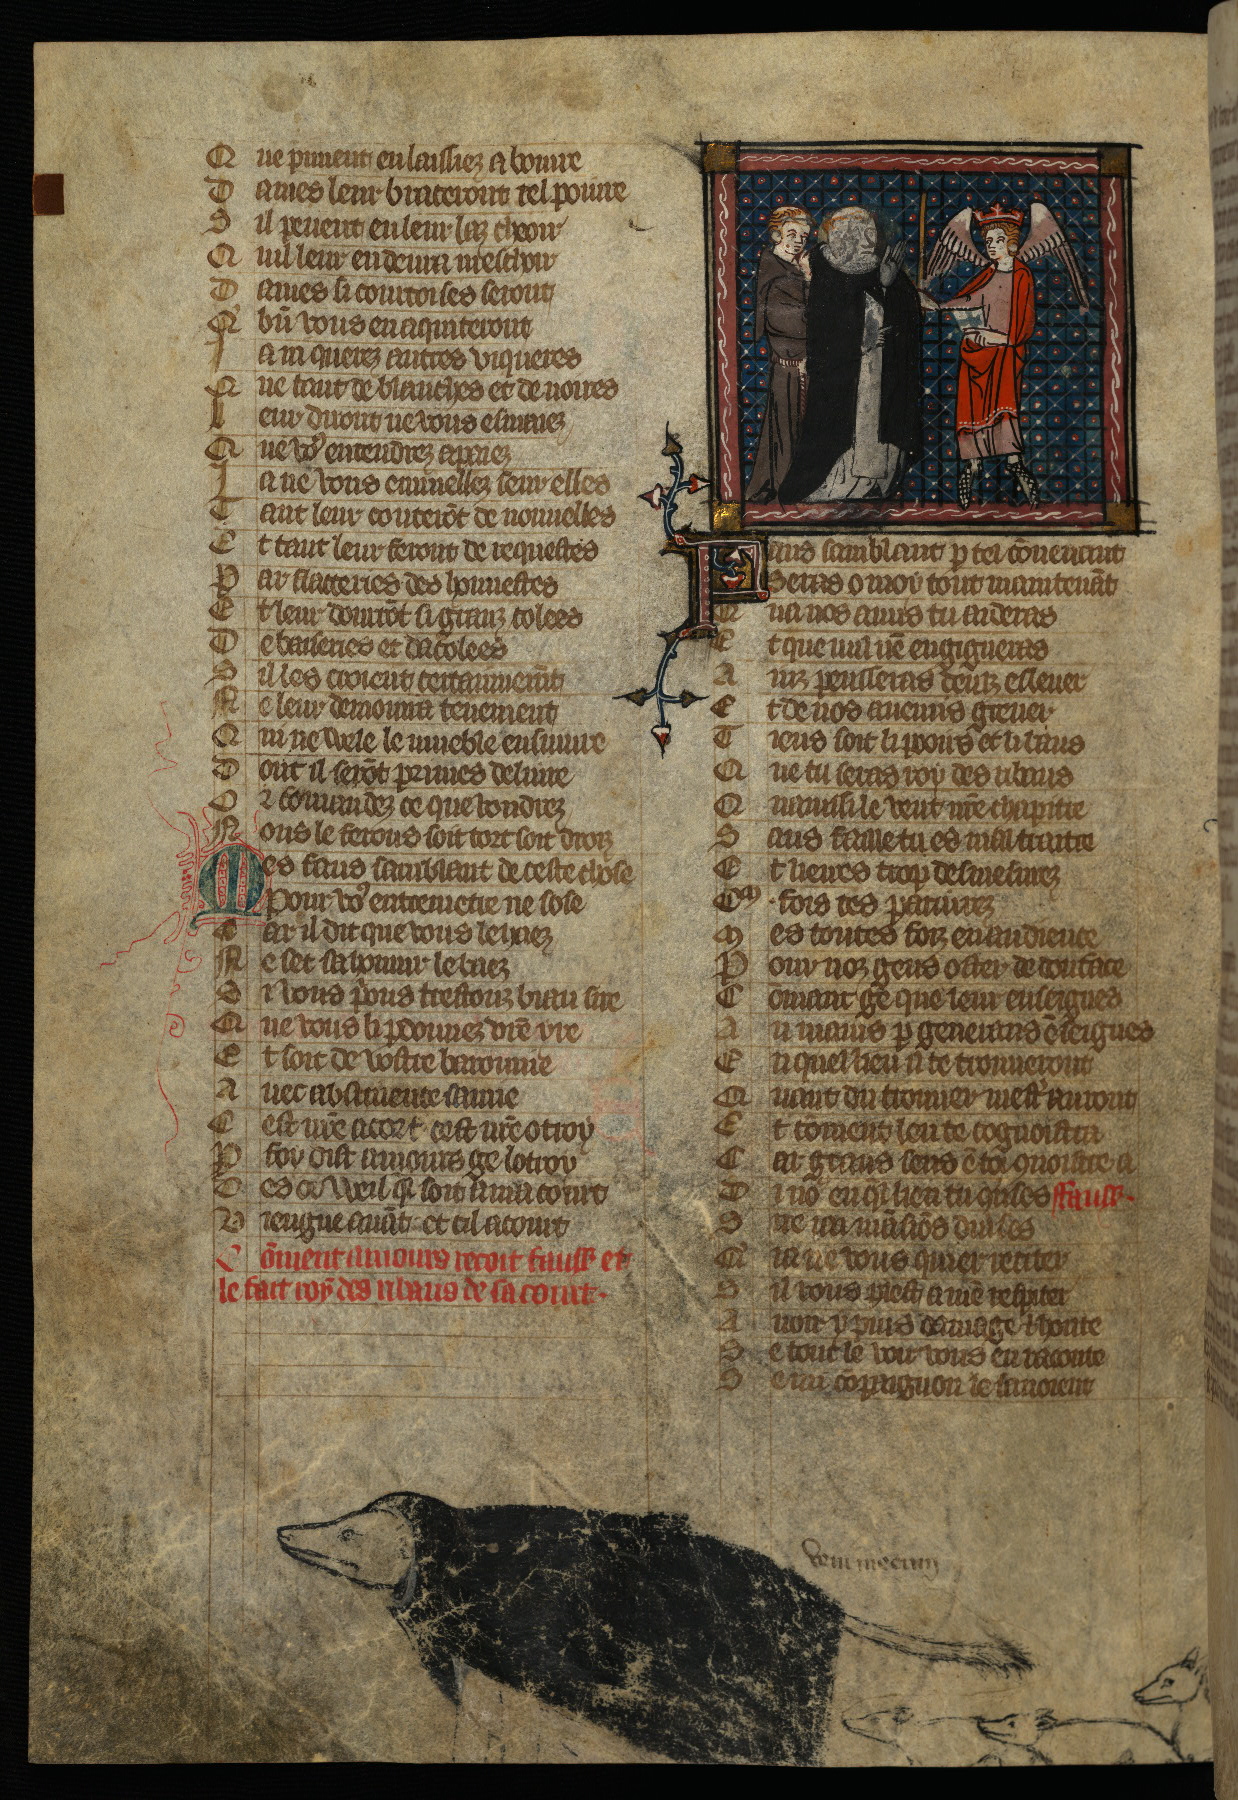 Que piment en laissiez a boivre
Dames leur braceront tel poivre
Sil peuent en leur laz cheoir
Quil leur en devra mescheoir
Dames si courtoises seront
Q' bñ vous en aquiteront
Ja ni querez autres vigueres
Que tant de blanches et de noires
Leur diront ne vous esmaiez
Que vo9 entendrez apaiez
Ja ne vous en mellez seur elles
Tant leur conterōt de nouvelles
Et tant leur feront de requestes
Par flateries des honnestes
Et leur donrrōt si granz colees
De baiseries et dacolees
Sil les croient certainemēt
Ne leur demourra tenement
Qui ne veile le mueble ensuivre
Dont il serōt primes delivre
Or commandez ce que voudrez
Nous le ferons soit tort soit droiz
Mes faus samblant de ceste chose
Pour vo9 entremetre ne lose
Car il dit que vous le haez
Ne set sa honnir le baez
Si vous prions trestouz biau sire
Que vous li pdonnez vr̄e yre
Et soit de vostre baronnie
Avec abstinence samie
Cest nr̄e acort cest nr̄e otroy
P foy dist amours ge lotroy
Des or weil qil soit a ma court
Viengne avāt et cil acourt
Cōment amours recoit fauss et
le fait roy des ribaus de sa court.
Faus samblant p tel cōvenant
Seras o moy tout maintenāt
Qua nos amis tu aideras
Et que nul nē engigneras
Ainz penseras deulz eslever
Et de nos anemis grever
Tiens soit li pooirs et li baus
Que tu seras roy des ribaus
Quainssi le veut nr̄e chapitre
Sans faille tu es mal traitre
Et lierres trop desmesurez
Cm. fois tes pariurez
Mes toutes foiz en audience
Pour noz gens oster de doutace
Cōmant ge que leur enseignes
Au mains p generaus ēseignes
En quel lieu il te trouveront
Quant du trouver mest' auront
Et cōment len te cognoistra
Car grans sens ē toi quoistre a
Di no9 en q̄l lieu tu cōses fauss.
Sire iai māsiōs diverses
Qui ia ne vous quier reciter
Sil vous plest a men respiter
Avoir y puis damage & honte
Se tout le voir vous en raconte
Se mi cōpaignon le savoient
veni mecum